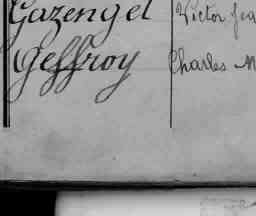 Gazengel Victor Jea
Geffroy Charles M